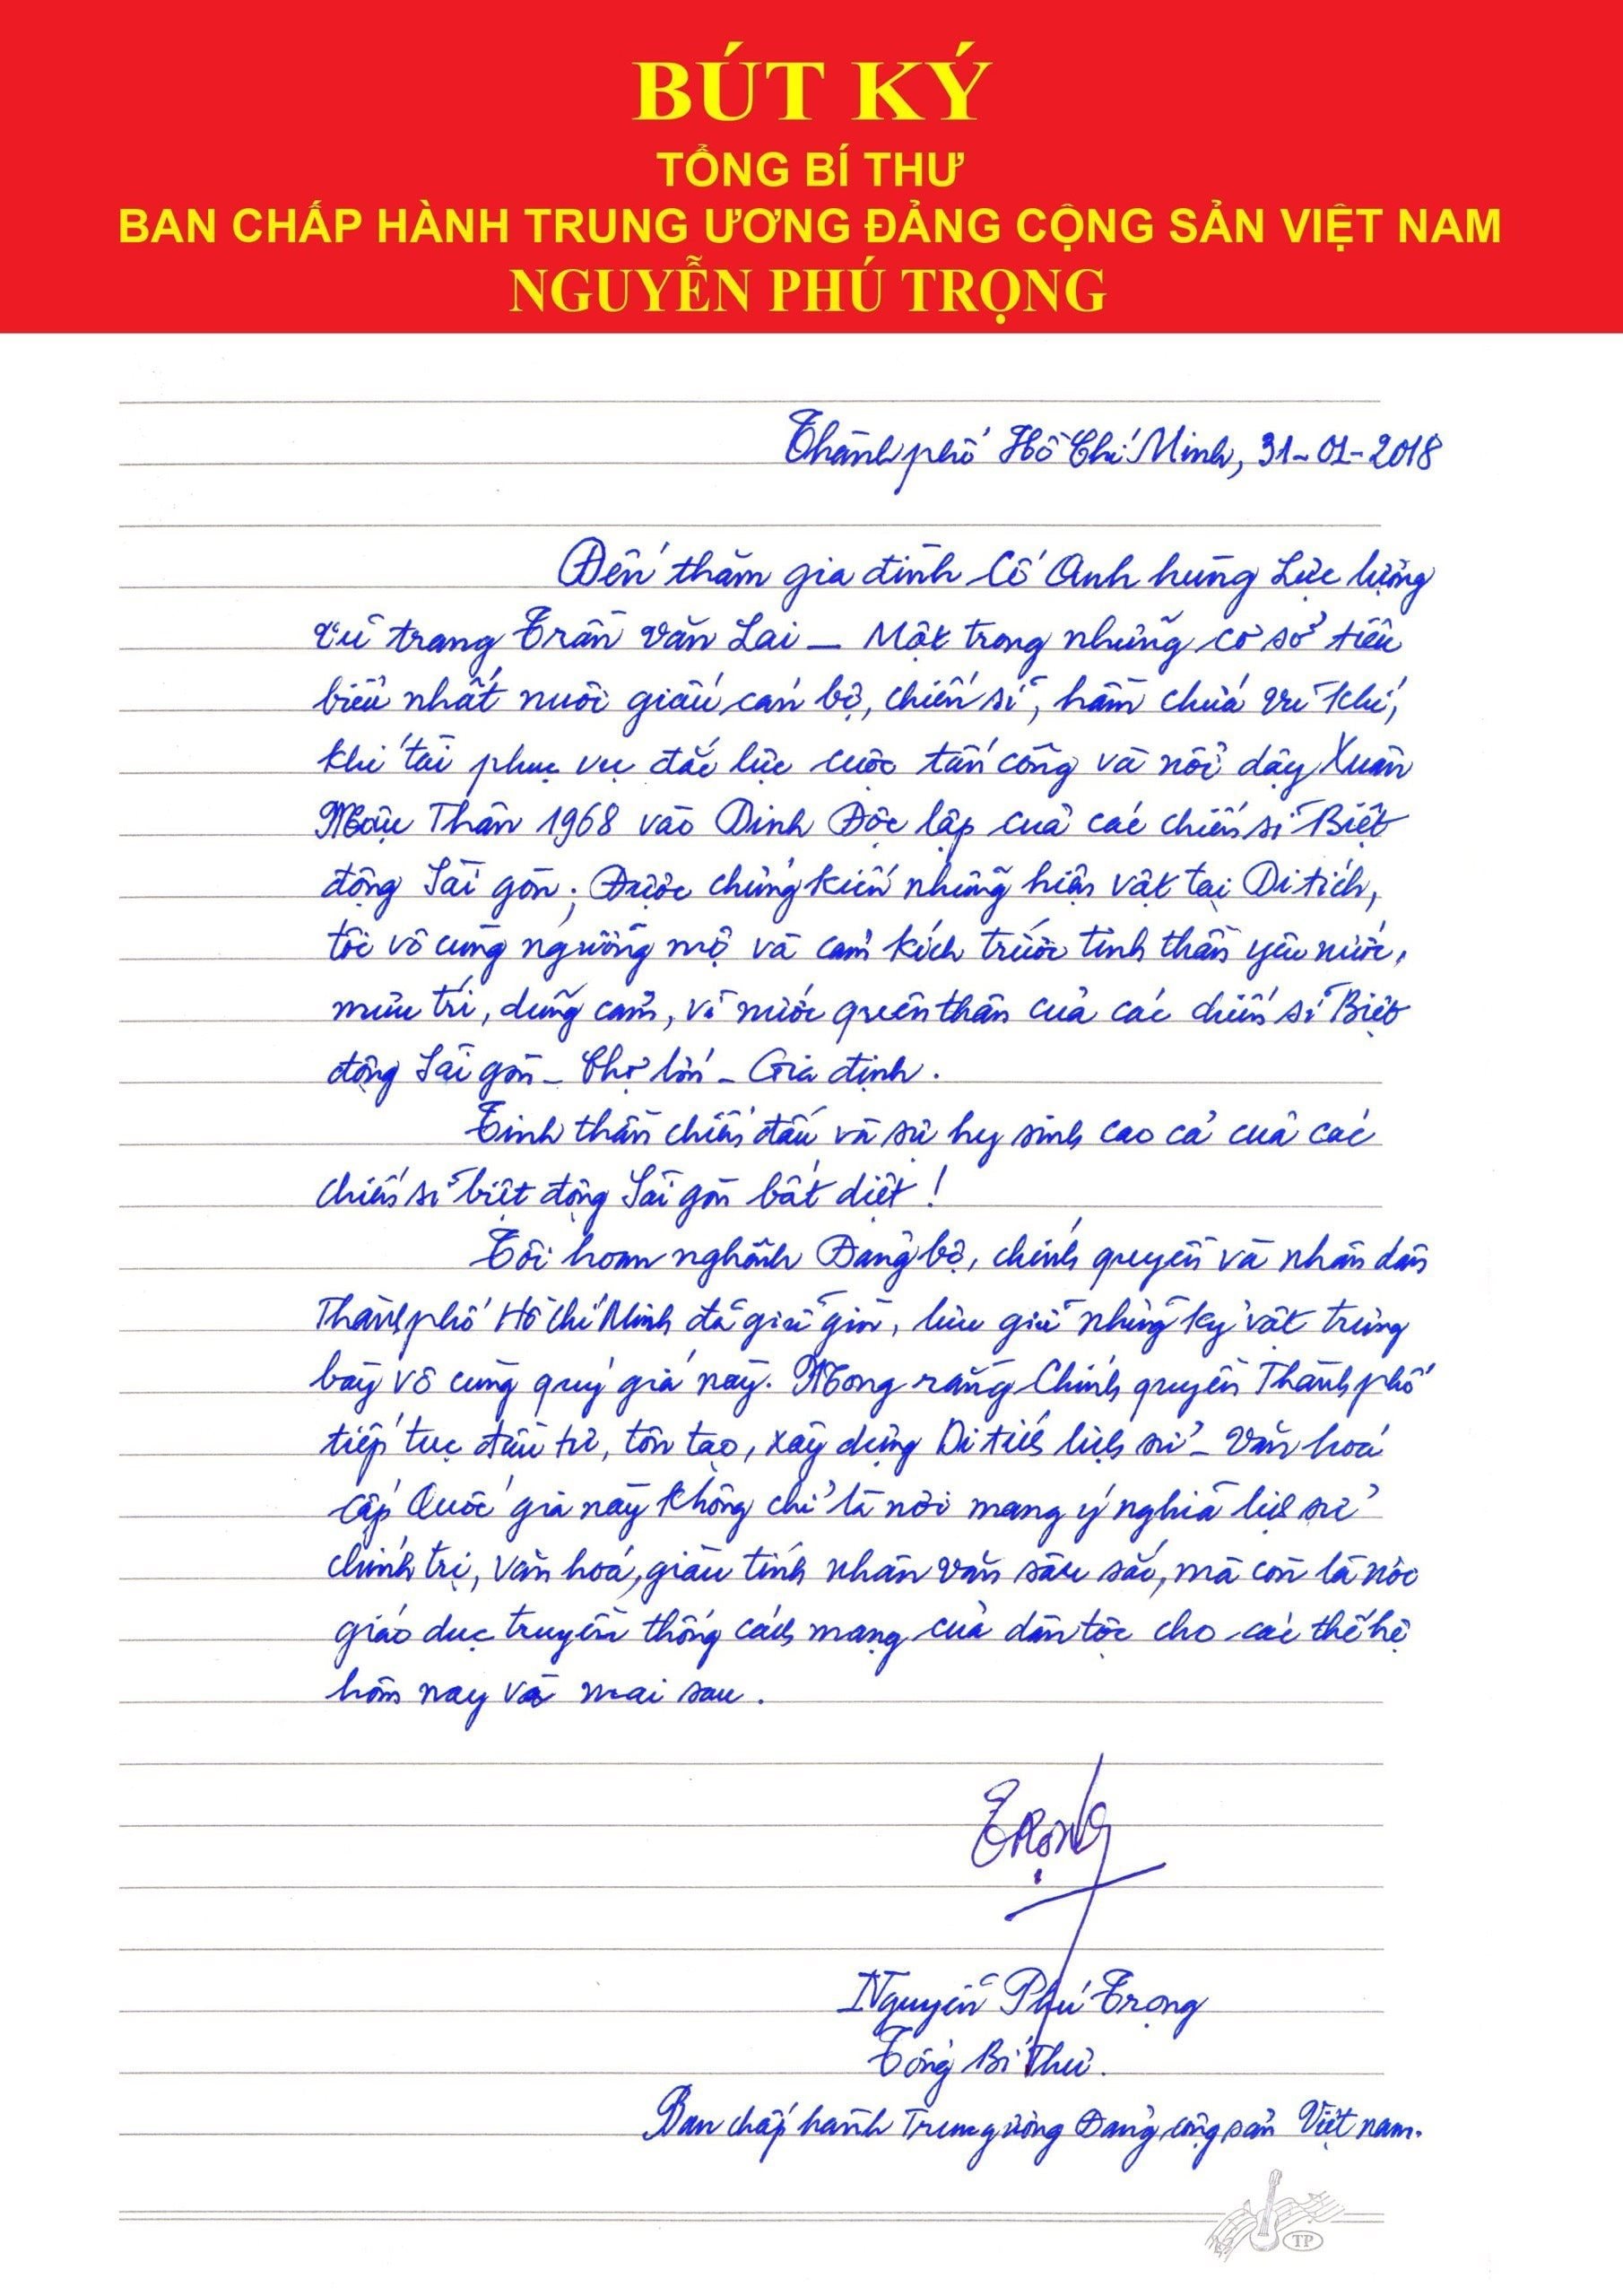 BÚT KÝ
TỔNG BÍ THƯ
BAN CHẤP HÀNH TRUNG ƯƠNG ĐẢNG CỘNG SẢN VIỆT NAM
NGUYỄN PHÚ TRỌNG
Thành phố Hồ Chí Minh, 31-01-2018
Đến thăm gia đình Cố Anh hùng Lực lượng
vũ trang Trần Văn Lai - Một trong những cơ sở tiêu
biểu nhất nuôi giấu cán bộ, chiến sĩ, hầm chứa vũ khí,
khí tài phục vụ đắc lực cuộc tấn công và nổi dậy Xuân
Mậu Thân 1968 vào Dinh Độc lập của các chiến sĩ Biệt
động Sài gòn; Được chứng kiến những hiện vật tại Di tích,
tôi vô cùng ngưỡng mộ và cảm kích trước tinh thần yêu nước,
mưu trí, dũng cảm, vì nước quên thân của các chiến sĩ Biệt
động Sài gòn - Chợ lớn - Gia định.
Tinh thần chiến đấu và sự hy sinh cao cả của các
chiến sĩ biệt động Sài gòn bất diệt!
Tôi hoan nghênh Đảng bộ, chính quyền và nhân dân
Thành phố Hồ Chí Minh đã giữ gìn, lưu giữ những kỷ vật trưng
bày vô cùng quý giá này. Mong rằng Chính quyền Thành phố
tiếp tục đầu tư, tôn tạo, xây dựng Di tích lịch sử - Văn hoá
cấp Quốc gia này không chỉ là nơi mang ý nghĩa lịch sử
chính trị, văn hoá, giàu tính nhân văn sâu sắc, mà còn là nơi
giáo dục truyền thống cách mạng của dân tộc cho các thế hệ
hôm nay và mai sau.
Trọng
Nguyễn Phú Trọng
Tổng Bí Thư.
Ban chấp hành Trung ương Đảng cộng sản Việt nam.
TP